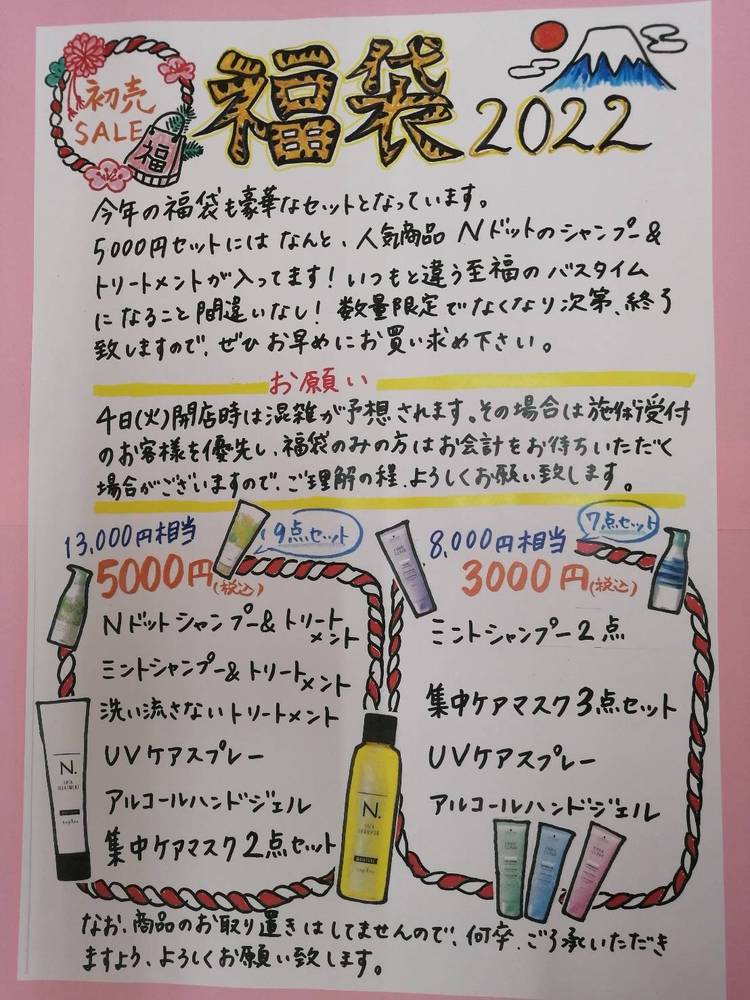 初売
SALE
福
福袋2022
今年の福袋も豪華なセットとなっています。
5000円セットにはなんと、人気商品 Nドットのシャンプー&
トリートメントが入ってます!いつもと違う至福のバスタイム
になること間違いなし!数量限定でなくなり次第、終了
致しますので、ぜひお早めにお買い求め下さい。
お願い
4日(火)開店時は混雑が予想されます。その場合は施術受付
のお客様を優先し、福袋のみの方はお会計をお待ちいただく
場合がございますので、ご理解の程、よろしくお願い致します。
13,000円相当
9点セット
5000円(税込)
Nドットシャンプー&トリートメント
ミントシャンプー&トリートメント
洗い流さないトリートメント
UVケアスプレー
アルコールハンドジェル
集中ケアマスク2点セット
8,000円相当
7点セット
3000円(税込)
ミントシャンプー2点
集中ケアマスク3点セット
UVケアスプレー
アルコールハンドジェル
N.
N.
なお、商品のお取り置きはしてませんので、何卒、ご了承いただき
ますよう、よろしくお願い致します。